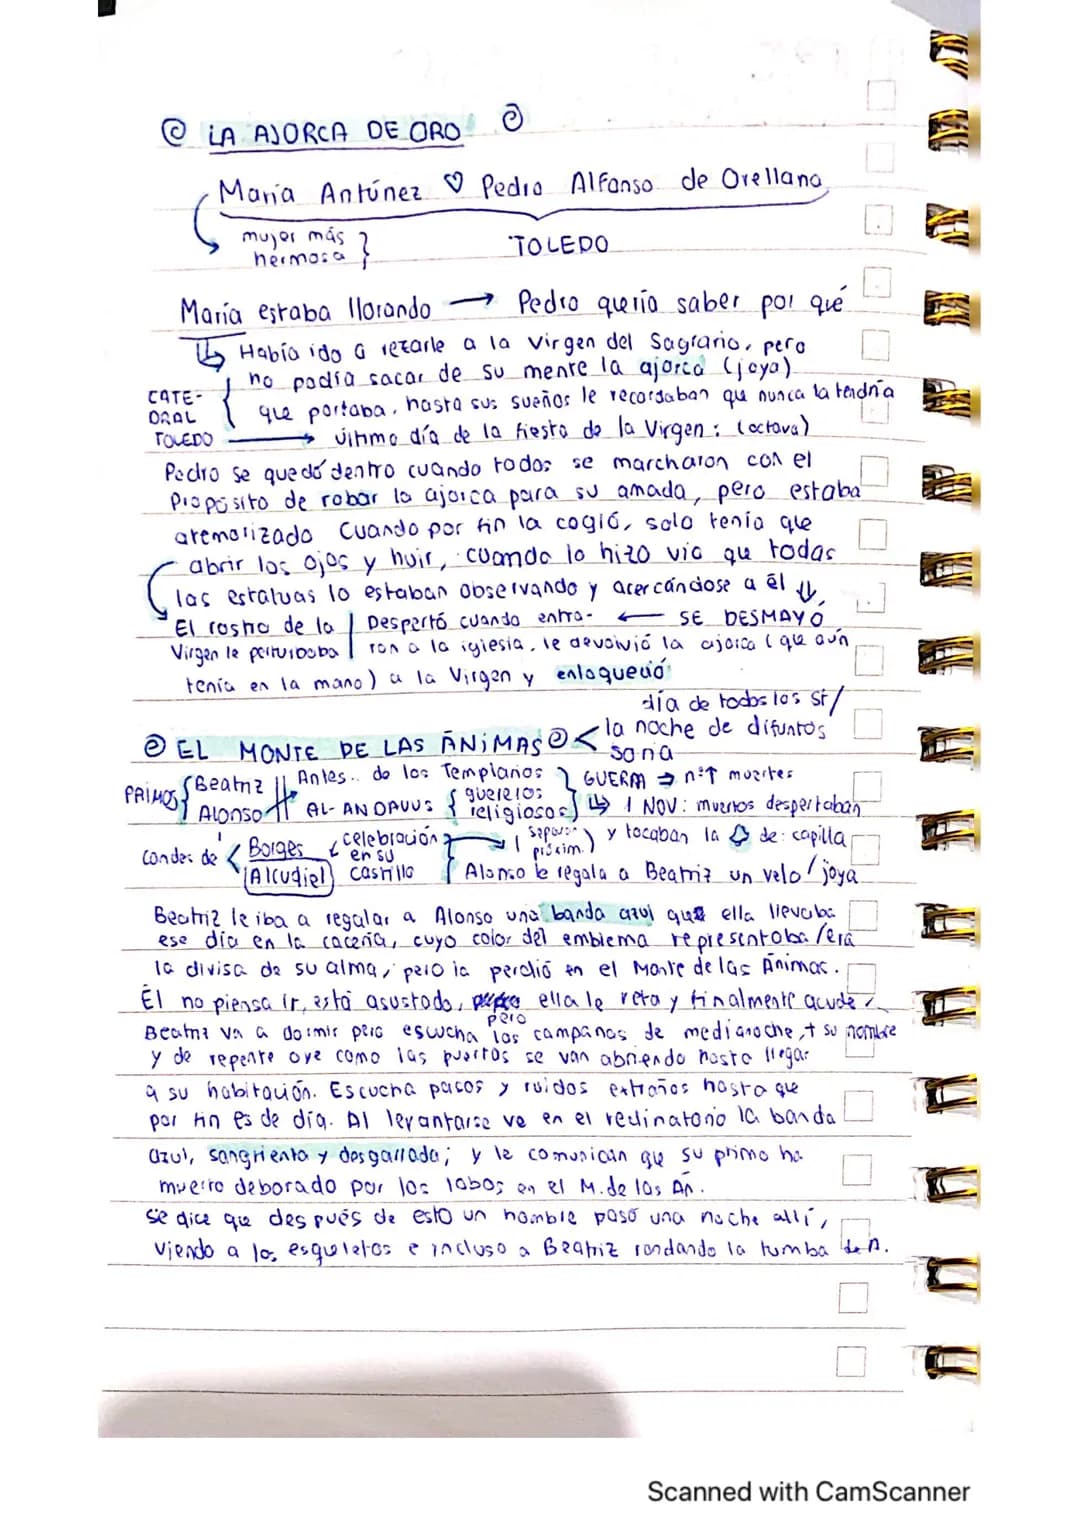 LA AJORCA DE ORO
María Antúnez ♡ Pedro Alfonso de Orellana
mujer más
hermosa
TOLEDO
María estaba llorando → Pedro quería saber por qué
↳ Había ido a rezarle a la Virgen del Sagrario, pero
no podía sacar de su mente la ajorca (joya)
CATE-
DRAL
TOLEDO
que portaba, hasta sus sueños le recordaban que nunca la tendría
→ último día de la fiesta de la Virgen: (octava)
Pedro se quedó dentro cuando todos se marcharon con el
propósito de robar la ajorca para su amada, pero estaba
atemorizado Cuando por fin la cogió, solo tenía que
abrir los ojos y huir, cuando lo hizo vio que todas
las estatuas lo estaban observando y acercándose a él ⇓
El rostro de la | Despertó cuando entra- ← SE DESMAYÓ
Virgen le perturbaba | ron a la iglesia, le devolvió la ajorca (que aún
tenía en la mano) a la Virgen y enloqueció
día de todos los st/
EL MONTE DE LAS ÁNIMAS < la noche de difuntos
soria
PRIMOS { Beatriz Antes.. de los Templarios GUERRA ⇒ nº↑ muertes
Alonso AL-ANDALUS { guerreros religiosos ↳ 1 NOV: muertos despertaban
y tocaban la 🔔 de: capilla
Condes de < Borges celebración
en su
Alcudiel castillo Alonso le regala a Beatriz un velo/joya
Beatriz le iba a regalar a Alonso una banda azul que ella llevaba
ese día en la cacería, cuyo color del emblema representaba/era
la divisa de su alma, pero la perdió en el Monte de las Ánimas.
Él no piensa ir, está asustado, pero ella le reta y finalmente acude.
Beatriz va a dormir pero escucha las campanas de medianoche, + su nombre
y de repente oye como las puertas se van abriendo hasta llegar
a su habitación. Escucha pasos y ruidos extraños hasta que
por fin es de día. Al levantarse ve en el reclinatorio la banda
azul, sangrienta y desgarrada; y le comunican que su primo ha
muerto deborado por los lobos en el M. de las Án.
Se dice que después de esto un hombre pasó una noche allí,
viendo a los esqueletos e incluso a Beatriz rondando la tumba de A.
Scanned with CamScanner